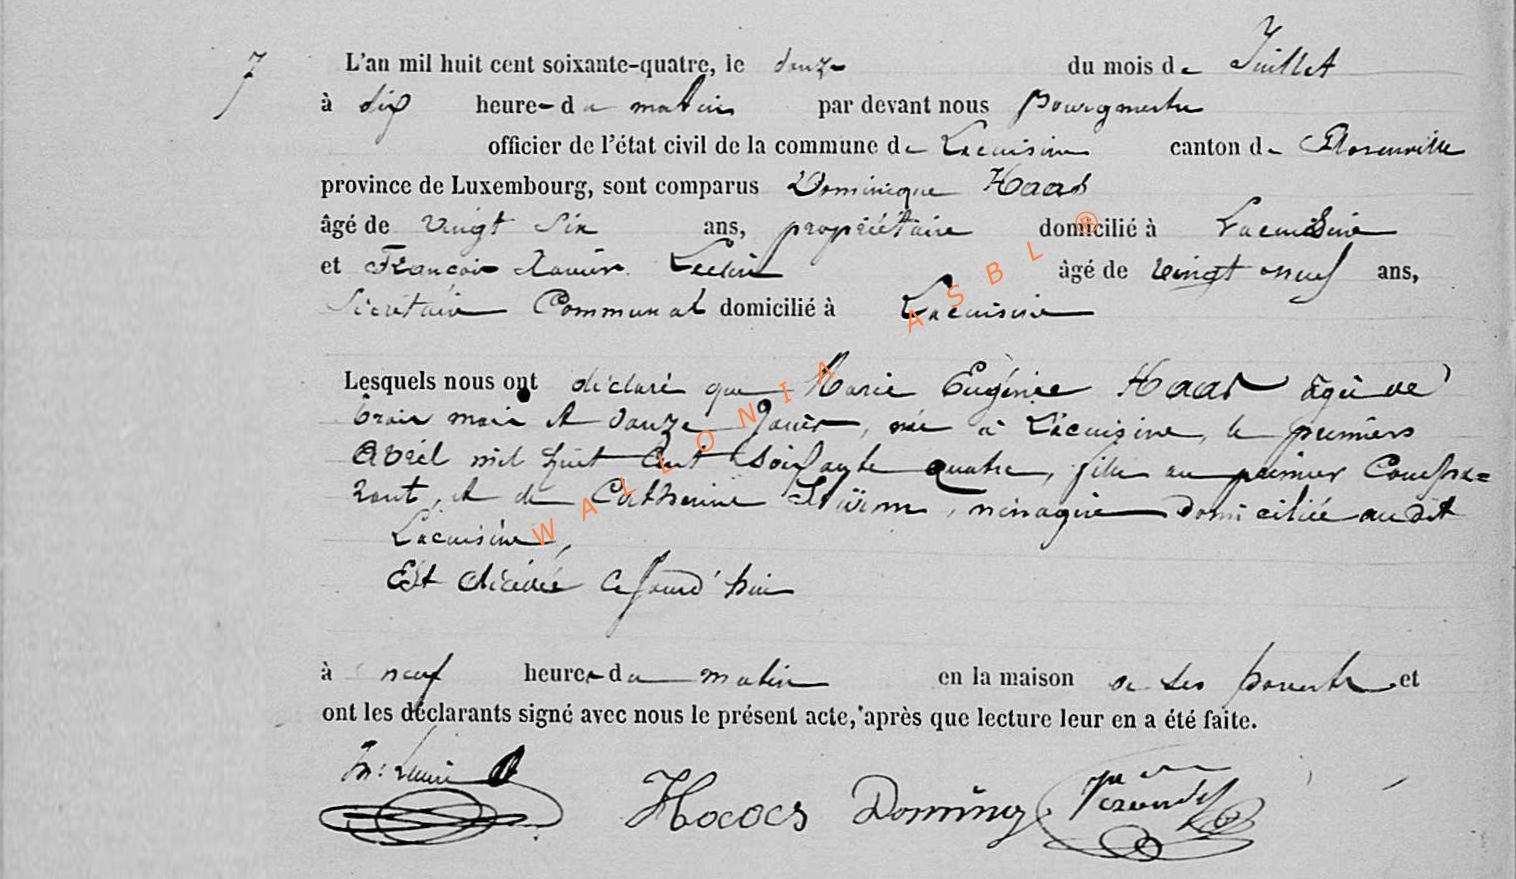 7
L'an mil huit cent soixante-quatre, le douze du mois de Juillet
à dix heures du matin par devant nous Bourgmestre
officier de l'état civil de la commune de Lacuisine canton de Florenville
province de Luxembourg, sont comparus Dominique Haas
âgé de vingt six ans, propriétaire domicilié à Lacuisine
et François Xavier âgé de vingt neuf ans,
Sécrétaire Communal domicilié à Lacuisine
Lesquels nous ont déclaré que Marie Eugénie Haas âgée de
trois mois et douze jours, née à Lacuisine, le premier
Avril mil huit cent soixante quatre, fille au premier Compa=
rant, et de Catherine ménagère domiciliée audit
Lacuisine,
Est décédée cejourd'hui
à neuf heures du matin en la maison de ses parents et
ont les déclarants signé avec nous le présent acte, après que lecture leur en a été faite.
Haas
WALLONIA ASBL ®